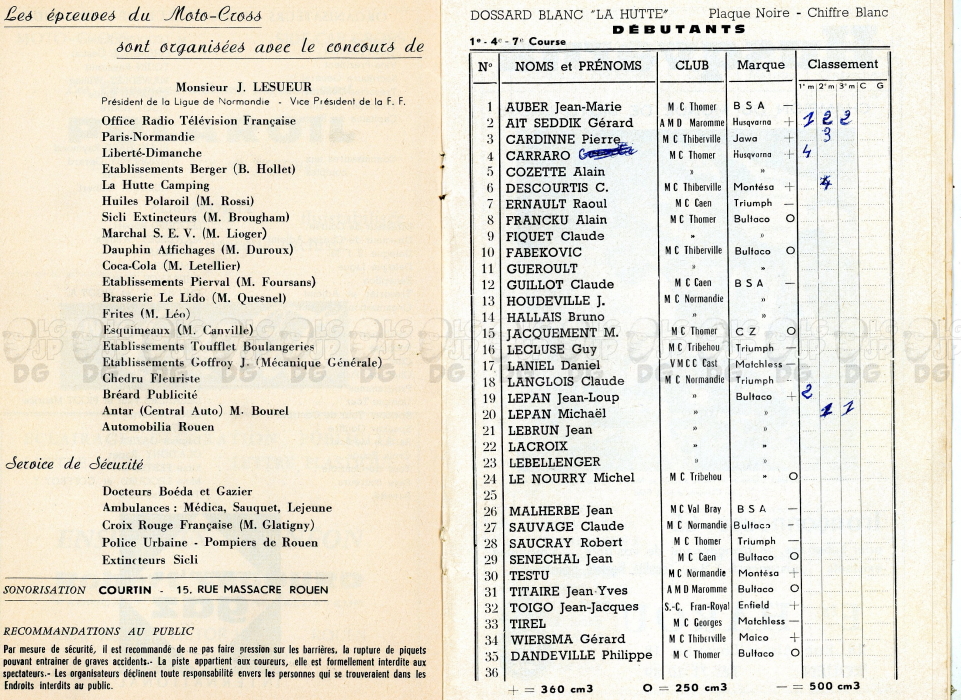 Les épreuves du Moto-Cross
sont organisées avec le concours de
Monsieur J. LESUEUR
Président de la Ligue de Normandie - Vice Président de la F. F.
Office Radio Télévision Française
Paris-Normandie
Liberté-Dimanche
Etablissements Berger (B. Hollet)
La Hutte Camping
Huiles Polaroil (M. Rossi)
Sicli Extincteurs (M. Brougham)
Marchal S. E. V. (M. Lioger)
Dauphin Affichages (M. Duroux)
Coca-Cola (M. Letellier)
Etablissements Pierval (M. Foursans)
Brasserie Le Lido (M. Quesnel)
Frites (M. Léo)
Esquimeaux (M. Canville)
Etablissements Toufflet Boulangeries
Etablissements Goffroy J. (Mécanique Générale)
Chedru Fleuriste
Bréard Publicité
Antar (Central Auto) M. Bourel
Automobilia Rouen
Service de Sécurité
Docteurs Boéda et Gazier
Ambulances : Médica, Sauquet, Lejeune
Croix Rouge Française (M. Glatigny)
Police Urbaine - Pompiers de Rouen
Extincteurs Sicli
SONORISATION COURTIN - 15. RUE MASSACRE ROUEN
RECOMMANDATIONS AU PUBLIC
Par mesure de sécurité, il est recommandé de ne pas faire pression sur les barrières. la rupture de piquets
pouvant entrainer de graves accidents.- La piste appartient aux coureurs, elle est formellement interdite aux
spectateurs.- Les organisateurs déclinent toute responsabilité envers les personnes qui se trouveraient dans les
Endroits interdits au public.
DOSSARD BLANC "LA HUTTE" Plaque Noire - Chiffre Blanc
DÉBUTANTS
1e - 4e - 7e Course
N° NOMS et PRÉNOMS CLUB Marque Classement
1e m 2e m 3e m C G
1 AUBER Jean-Marie M C Thomer B S A —
2 AIT SEDDIK Gérard A M D Maromme Husqvarna + 1 2 2
3 CARDINNE Pierre M C Thiberville Jawa + 3
4 CARRARO M C Thomer Husqvarna + 4
5 COZETTE Alain » »
6 DESCOURTIS C. M C Thiberville Montésa + 4
7 ERNAULT Raoul M C Caen Triumph —
8 FRANCKU Alain M C Thomer Bultaco O
9 FIQUET Claude » »
10 FABEKOVIC M C Thiberville Bultaco O
11 GUEROULT » »
12 GUILLOT Claude M C Caen B S A —
13 HOUDEVILLE J. M C Normandie »
14 HALLAIS Bruno » »
15 JACQUEMENT M. M C Thomer C Z O
16 LECLUSE Guy M C Tribehou Triumph —
17 LANIEL Daniel V M C C Cast Matchless -
18 LANGLOIS Claude M C Normandie Triumph —
19 LEPAN Jean-Loup » Bultaco + 2
20 LEPAN Michaël » » 1 1
21 LEBRUN Jean » »
22 LACROIX » »
23 LEBELLENGER » »
24 LE NOURRY Michel M C Tribehou » O
25
26 MALHERBE Jean M C Val Bray B S A —
27 SAUVAGE Claude M C Normandie Bultaco —
28 SAUCRAY Robert M C Thomer Triumph —
29 SENECHAL Jean M C Caen Bultaco O
30 TESTU M C Normandie Montésa +
31 TITAIRE Jean-Yves A M D Maromme Bultaco O
32 TOIGO Jean-Jacques S.-C. Fran-Royal Enfield +
33 TIREL M C Georges Matchless —
34 WIERSMA Gérard M C Thiberville Maico +
35 DANDEVILLE Philippe M C Thomer Bultaco O
36
+ = 360 cm3 O = 250 cm3 — = 500 cm3